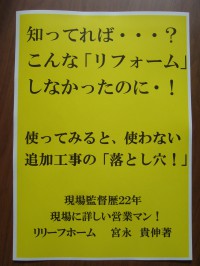 知ってれば・・・?
こんな「リフォーム」
しなかったのに・!
使ってみると、使わない
追加工事の「落とし穴!」
現場監督歴22年
現場に詳しい営業マン!
リリーフホーム 宮永 貴伸著